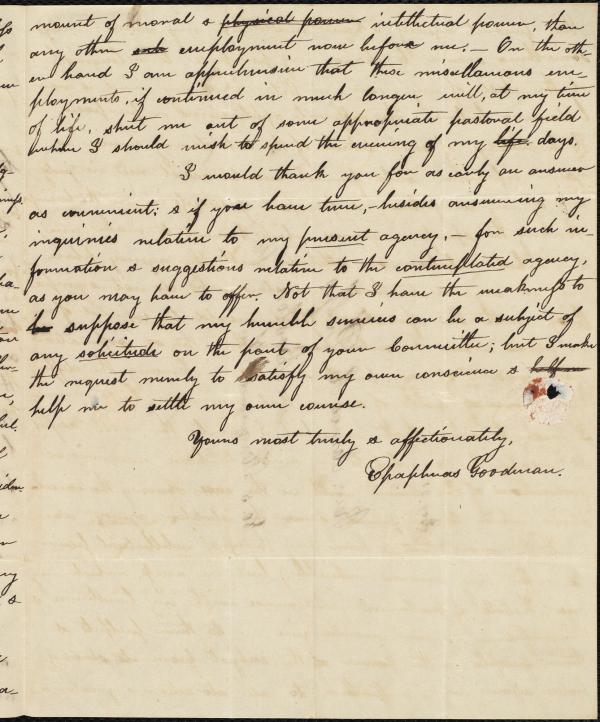 mount of moral & physical power intellectual power, than
any other sub employment now before me. — On the oth-
er hand I am apprehensive that these miscellaneous em-
ployments, if continued in much longer will, at my time
of life, shut me out of some appropriate pastoral field
where I should wish to spend the evening of my life days.
I would thank you for as early an answer
as convenient; & if you have time, – besides answering my
inquiries relative to my present agency, – for such in-
formation & suggestions relative to the contemplated agency,
as you may have to offer. Not that I have the weakness to
be suppose that my humble services can be a subject of
any solicitude on the part of your Committee; but I make
the request merely to satisfy my own conscience & help me
help me to settle my own course.
Yours most truly & affectionately,
Epaphras Goodman.